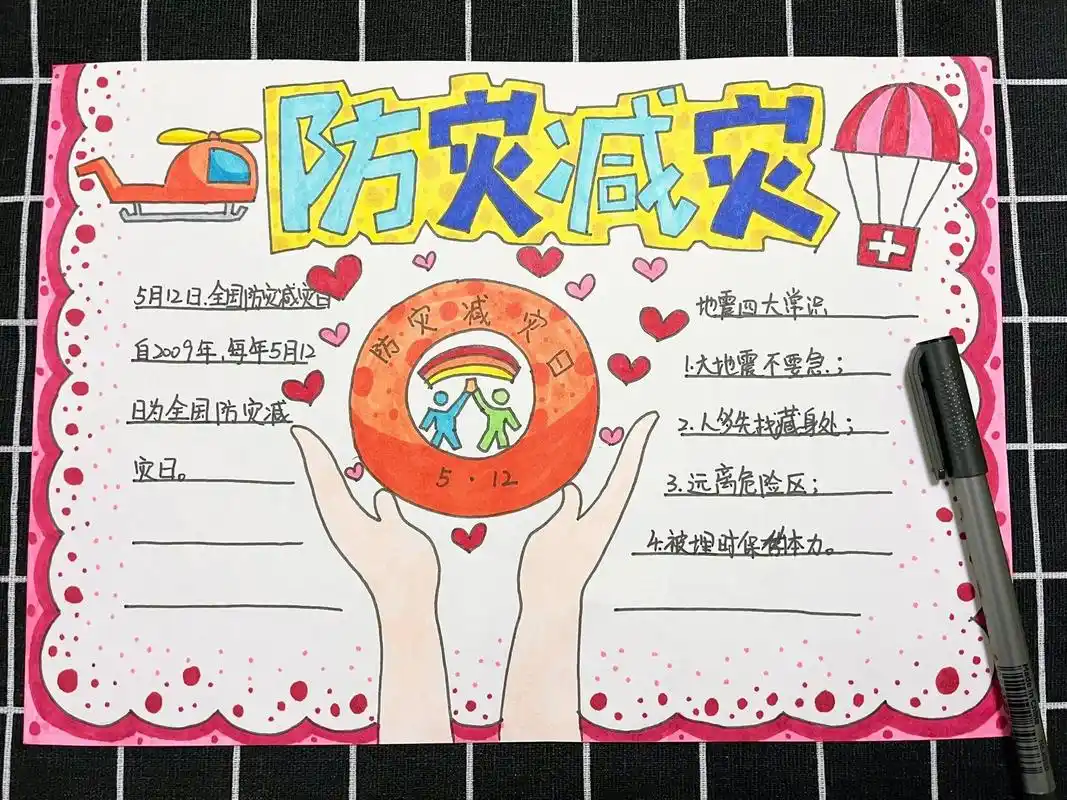 防灾减灾
5月12日.全国防灾减灾日
自2009年,每年5月12
日为全国防灾减
灾日。
防灾减灾日
5·12
地震四大常识
1.大地震不要急;
2.人多先找藏身处;
3.远离危险区;
4.被埋时保存体力。